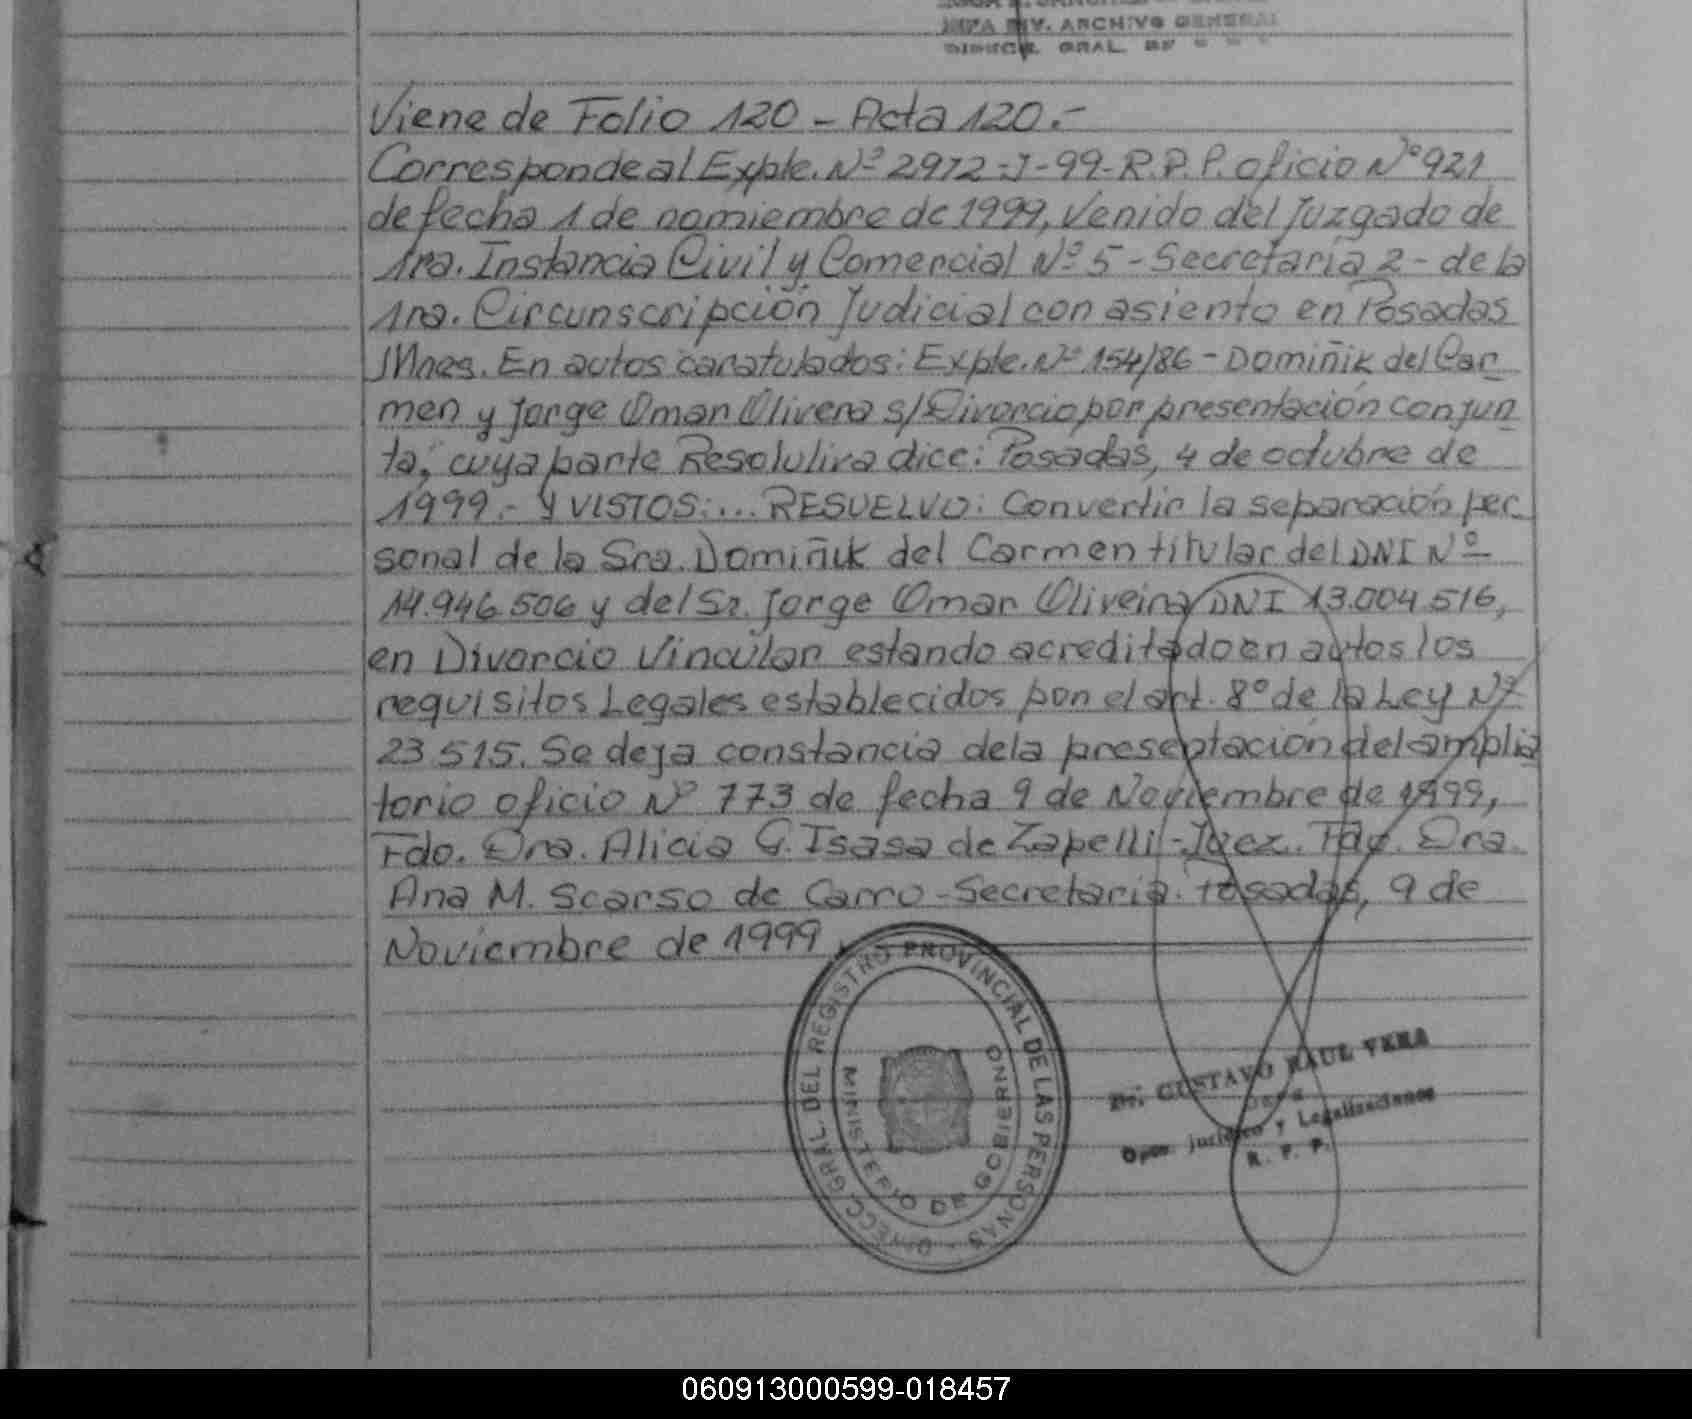 JEFA DIV. ARCHIVO GENERAL
GRAL.
Viene de Folio 120 - Acta 120.-
Corresponde al Expte. Nº 2912-J-99-R.P.P. oficio Nº 921
de fecha 1 de nomiembre de 1999, Venido del Juzgado de
1ra. Instancia Civil y Comercial Nº 5 - Secretaría 2 - de la
1ra. Circunscripción Judicial con asiento en Posadas
Mnes. En autos caratulados: Expte. Nº 154/86 - Domiñik del Car
men y Jorge Omar Olivera s/Divorcio por presentación conjun
ta", cuya parte Resolutiva dice: Posadas, 4 de octubre de
1999.- Y VISTOS:... RESUELVO: Convertir la separación per
sonal de la Sra. Domiñuk del Carmen titular del DNI Nº
14.946.506 y del Sr. Jorge Omar Oliveira DNI 13.004.516,
en Divorcio Vincular estando acreditado en autos los
requisitos Legales establecidos por el art. 8º de la Ley Nº
23.515. Se deja constancia de la presentación del amplia
torio oficio Nº 773 de fecha 9 de Noviembre de 1999,
Fdo. Dra. Alicia G. Isasa de Zapelli - Juez. Fdo. Dra.
Ana M. Scarso de Carro - Secretaria. Posadas, 9 de
Noviembre de 1999
DIRECC. GRAL. DEL REGISTRO PROVINCIAL DE LAS PERSONAS
MINISTERIO DE GOBIERNO
Dr. GUSTAVO RAUL VERA
Dpto. Jurídico y Legalizaciones
R. P. P.
060913000599-018457